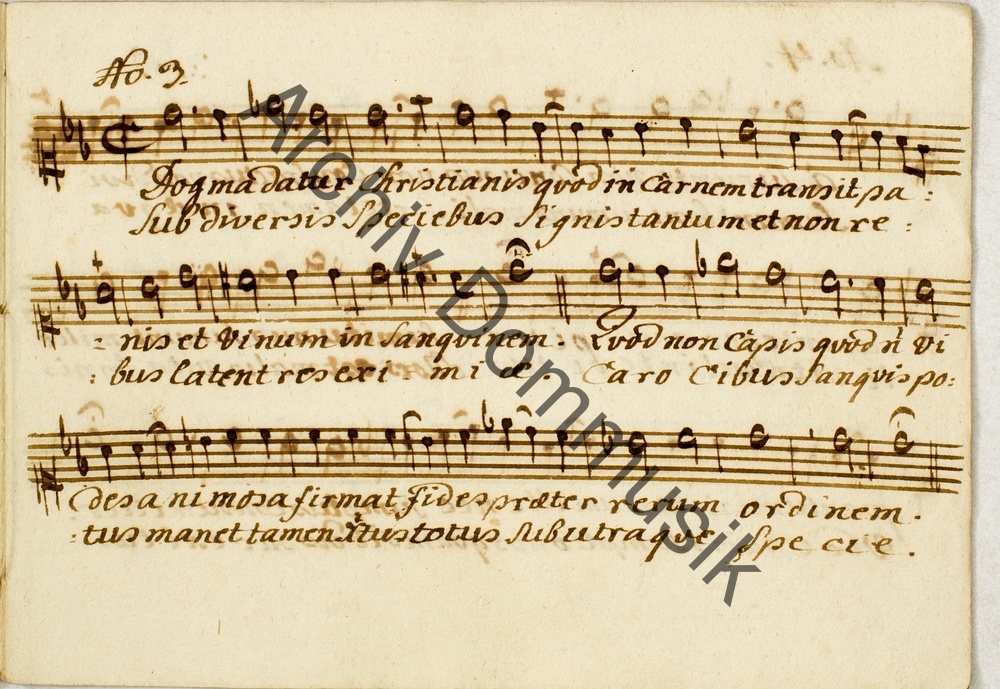 No. 3.
Dogma datur Christianis qvod in Carnem transit pa :
Sub diversis Speciebus Signis tantum et non re :
: nis et Vinum in Sanqvinem. Qvod non Capis qvod n vi
: bus latent res exi - mi æ. Caro Cibus Sanqvis po:
des animosa firmat fides præter rerum ordinem.
: tus manet tamen Xtus totus Sub utraqve Specie.
Archiv Dommusik